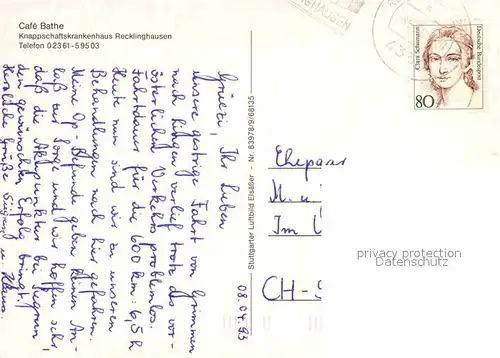 Café Bathe
Knappschaftskrankenhaus Recklinghausen
Telefon 0 23 61-5 95 03
GHAUSEN
Clara Schumann
Deutsche Bundespost
80
Grüezi, Ihr Lieben
unsere gestrige Fahrt von Grimmen
nach hingen verlief trotz des vor-
österlichen Verkehrs problemlos.
Fahrtdauer für die 600 km: 6,5 h
Heute nun sind wir zu unseren
Behandlungen nach hier gefahren.
Meine Op-Befunde geben keinen An-
laß zur Sorge und wir hoffen sehr,
daß die Akupunktur bei
den gewünschten Erfolg bringt.
Herzliche Grüße
08.04.93
Stuttgarter Luftbild Elsäßer - Nr. 83978/9/68135
Ehepaar
M. u
Im
CH-
privacy protection
Datenschutz